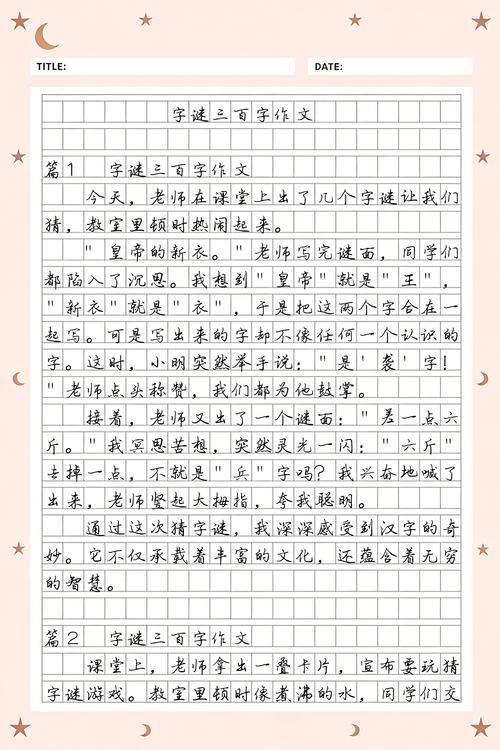 TITLE:
DATE:
字谜三百字作文
篇1 字谜三百字作文
今天，老师在课堂上出了几个字谜让我们
猜，教室里顿时热闹起来。
"皇帝的新衣。"老师写完谜面，同学们
都陷入了沉思。我想到"皇帝"就是"王"，
"新衣"就是"衣"，于是把这两个字合在一
起写。可是写出来的字却不像任何一个认识的
字。这时，小明突然举手说："是'袭'字！
"老师点头称赞，我们都为他鼓掌。
接着，老师又出了一个谜面："差一点六
斤。"我冥思苦想，突然灵光一闪："六斤"
去掉一点，不就是"兵"字吗？我兴奋地喊了
出来，老师竖起大拇指，夸我聪明。
通过这次猜字谜，我深深感受到汉字的奇
妙。它不仅承载着丰富的文化，还蕴含着无穷
的智慧。
篇2 字谜三百字作文
课堂上，老师拿出一叠卡片，宣布要玩猜
字谜游戏。教室里顿时像煮沸的水，同学们交